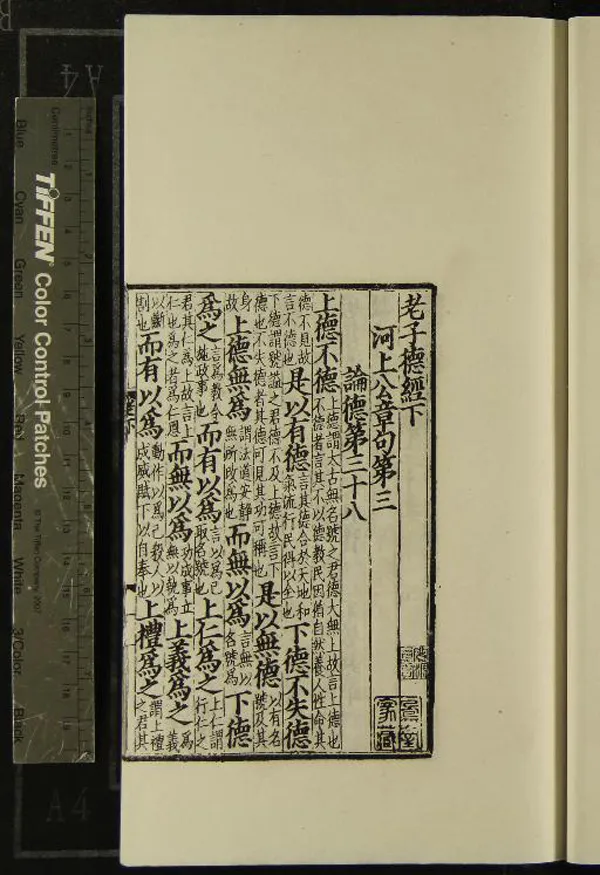 老子德經下
河上公章句第三
論德第三十八
上德不德上德謂太古無名號之君德大無上故言上德也不德者言其不以德教民因循自然養人性命其
德不見故言不德也是以有德言其德合於天地和氣流行民得以全也下德不失德
下德謂號謚之君德不及上德故言下德也不失德者其德可見其功可稱也是以無德以有名號及其
身故上德無爲謂法道安靜無所改爲也而無以爲言無以名號爲下德
爲之言爲教令施政事也而有以爲言以爲己取名號也上仁爲之上仁謂行仁之
君其仁爲上故言上仁也爲之者爲仁恩而無以爲功成事立無以執爲上義爲之爲義
以斷割也而有以爲動作以爲己殺人以成威賦下以自奉也上禮爲之謂上禮之君其
A4
Inches
Centimetres
TIFFEN Color Control Patches
© The Tiffen Company, 2007
Blue
Cyan
Green
Yellow
Red
Magenta
White
3/Color
Black
A4